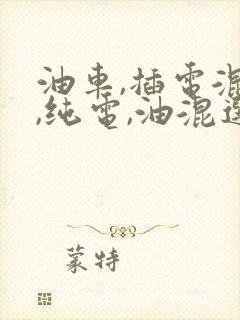 油車,插電混
,純電,油混選
蒙特